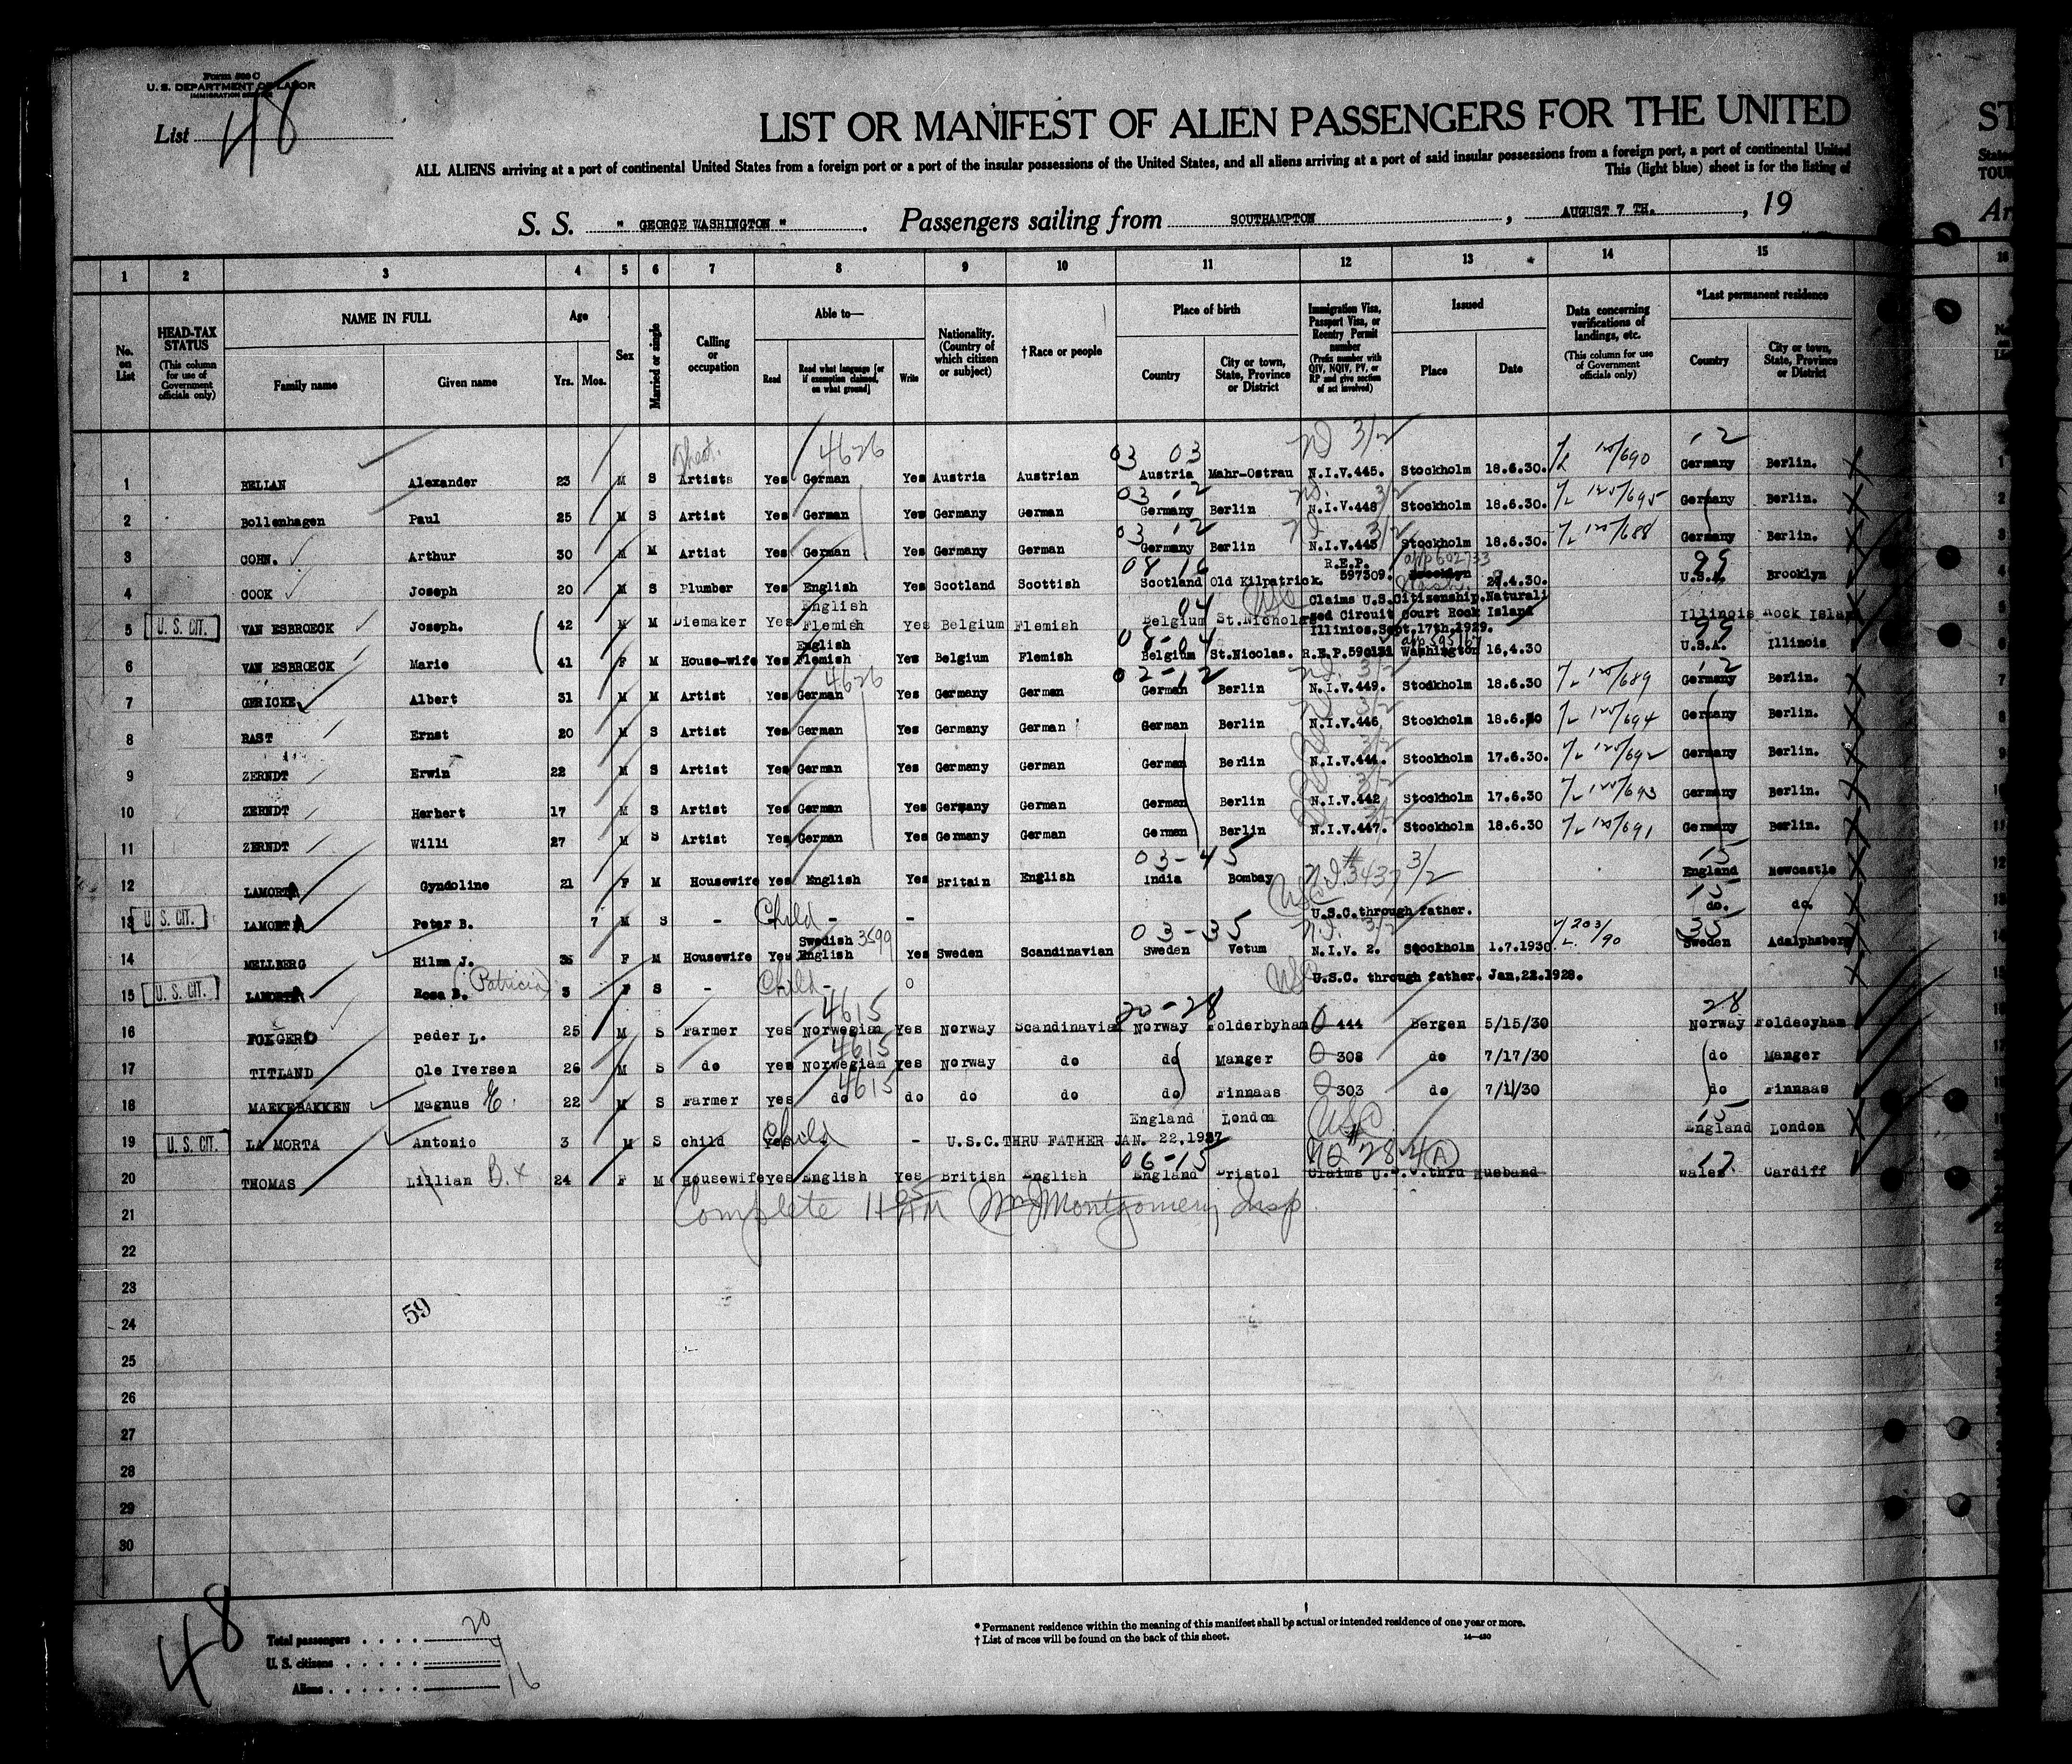 Form 500 C
U. S. DEPARTMENT OF LABOR
IMMIGRATION SERVICE
List 48
LIST OR MANIFEST OF ALIEN PASSENGERS FOR THE UNITED
ST
ALL ALIENS arriving at a port of continental United States from a foreign port or a port of the insular possessions of the United States, and all aliens arriving at a port of said insular possessions from a foreign port, a port of continental United
This (light blue) sheet is for the listing of
S. S. " GEORGE WASHINGTON " . Passengers sailing from SOUTHAMPTON , AUGUST 7 TH. , 19
1 2 3 4 5 6 7 8 9 10 11 12 13 14 15
No. on List
HEAD-TAX STATUS (This column for use of Government officials only)
NAME IN FULL Family name Given name
Age Yrs. Mos.
Sex
Married or single
Calling or occupation
Able to— Read Read what language [or if exemption claimed, on what ground] Write
Nationality. (Country of which citizen or subject)
†Race or people
Place of birth Country City or town, State, Province or District
Immigration Visa, Passport Visa, or Reentry Permit number (Prefix number with QIV, NQIV, PV, or RP and give section of act involved)
Issued Place Date
Data concerning verifications of landings, etc. (This column for use of Government officials only)
*Last permanent residence Country City or town, State, Province or District
4626 03 03 3/2 12
1 BELIAN Alexander 23 M S Artists Yes German Yes Austria Austrian Austria Mahr-Ostrau N.I.V.445. Stockholm 18.6.30. 120/690 Germany Berlin.
03 12 3/2
2 Bollenhagen Paul 25 M S Artist Yes German Yes Germany German Germany Berlin N.I.V.448 Stockholm 18.6.30. 120/695 Germany Berlin.
03 12 3/2
3 COHN. Arthur 30 M M Artist Yes German Yes Germany German Germany Berlin N.I.V.443 Stockholm 18.6.30. 120/688 Germany Berlin.
08 16 R.E.P. 99
4 COOK Joseph 20 M S Plumber Yes English Yes Scotland Scottish Scotland Old Kilpatrick. 597309. 29.4.30. U.S.A. Brooklyn
04 USC Claims U.S.Citizenship.Naturali
5 U. S. CIT. VAN ESBROECK Joseph. 42 M M Diemaker Yes English Flemish Yes Belgium Flemish Belgium St.Nicholas sed Circuit Court Rock Island Illinios.Sept.17th.1929. Illinois Rock Island
08-04 99
6 VAN ESBROECK Marie 41 F M House-wife Yes English Flemish Yes Belgium Flemish Belgium St.Nicolas. R.E.P.590131 Washington 16,4.30 U.S.A. Illinois
4626 02-12 3/2 12
7 GERICKE Albert 31 M M Artist Yes German Yes Germany German German Berlin N.I.V.449. Stockholm 18.6.30 120/689 Germany Berlin.
3/2
8 RAST Ernst 20 M S Artist Yes German Yes Germany German German Berlin N.I.V.446. Stockholm 18.6.30 120/694 Germany Berlin.
3/2
9 ZERNDT Erwin 22 M S Artist Yes German Yes Germany German German Berlin N.I.V.444. Stockholm 17.6.30. 120/692 Germany Berlin.
3/2
10 ZERNDT Herbert 17 M S Artist Yes German Yes Germany German German Berlin N.I.V.442 Stockholm 17.6.30 120/693 Germany Berlin.
3/2
11 ZERNDT Willi 27 M S Artist Yes German Yes Germany German German Berlin N.I.V.447. Stockholm 18.6.30 120/691 Germany Berlin.
03-45 15
12 LAMORTA Gyndoline 21 F M Housewife Yes English Yes Britain English India Bombay 3437 3/2 England Newcastle
15
13 U. S. CIT. LAMORTA Peter B. 7 M S - Child - - USC U.S.C.through father. do. do.
03-35 3/2 35
14 MELLBERG Hilma J. 35 F M Housewife Yes Swedish 3599 English Yes Sweden Scandinavian Sweden Vetum N.I.V. 2. Stockholm 1.7.1930 203/90 Sweden Adalphsberg
15 U. S. CIT. LAMORTA Rosa B. (Patricia) 3 F S - Child - USC U.S.C. through father. Jan,22.1928.
4615 20-28 28
16 peder L. 25 M S Farmer Yes Norwegian Yes Norway Scandinavian Norway Folderbyham 444 Bergen 5/15/30 Norway
4615
17 TITLAND Ole Iversen 26 M S do Yes Norwegian Yes Norway do do Manger 308 do 7/17/30 do Manger
4615
18 MAEKEBAKKEN Magnus E. 22 M S Farmer Yes do do do do do Finnaas 303 do 7/1/30 do Finnaas
England London USC 15
19 U. S. CIT. LA MORTA Antonio 3 M S child Child - U.S.C.THRU FATHER JAN. 22,1927 England London
06-15 NQ 28 4(A) 17
20 THOMAS Lillian B. 24 F M Housewife Yes English Yes British English England Bristol Claims U.S.C.thru Husband Wales Cardiff
21 Complete Montgomery Insp
22
23
24 59
25
26
27
28
29
30
48
Total passengers . . . . 20
U. S. citizens . . . . . 4
Aliens . . . . . . 16
* Permanent residence within the meaning of this manifest shall be actual or intended residence of one year or more.
† List of races will be found on the back of this sheet.
14—430